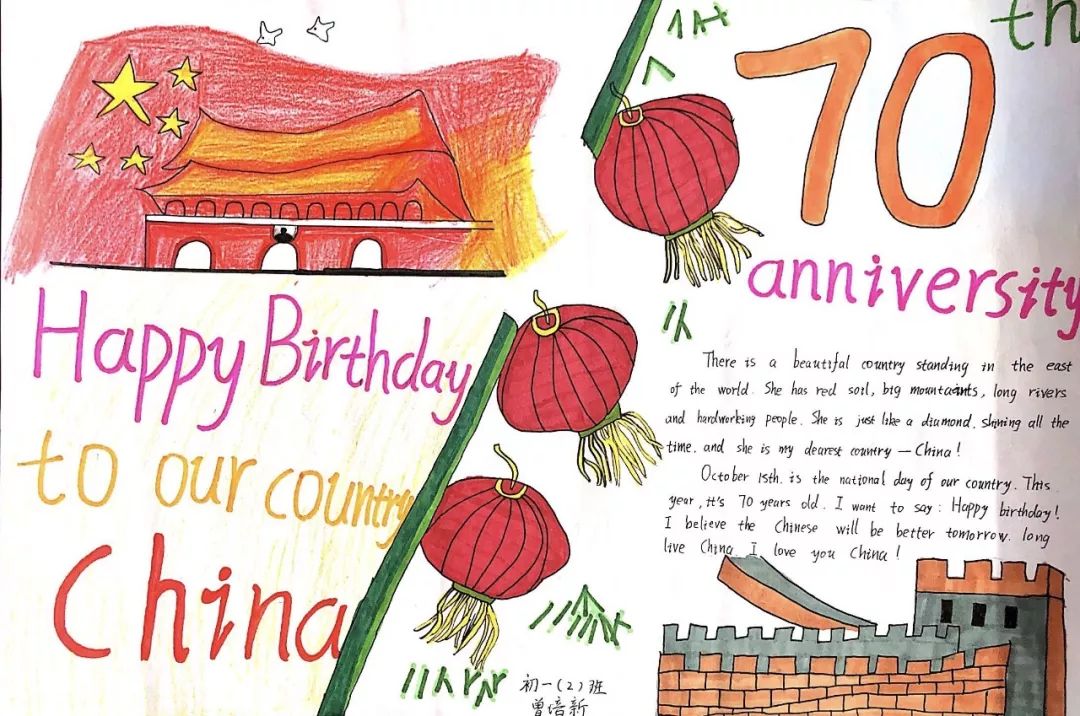 70th
anniversity
Happy Birthday
to our country
China
There is a beautiful country standing in the east
of the world. She has red soil, big mountaints, long rivers
and hardworking people. She is just like a diamond, shining all the
time, and she is my dearest country — China!
October 1sth. is the national day of our country. This
year, it's 70 years old. I want to say: Happy birthday!
I believe the Chinese will be better tomorrow. long
live China. I love you China!
初一(2)班
曾倍新